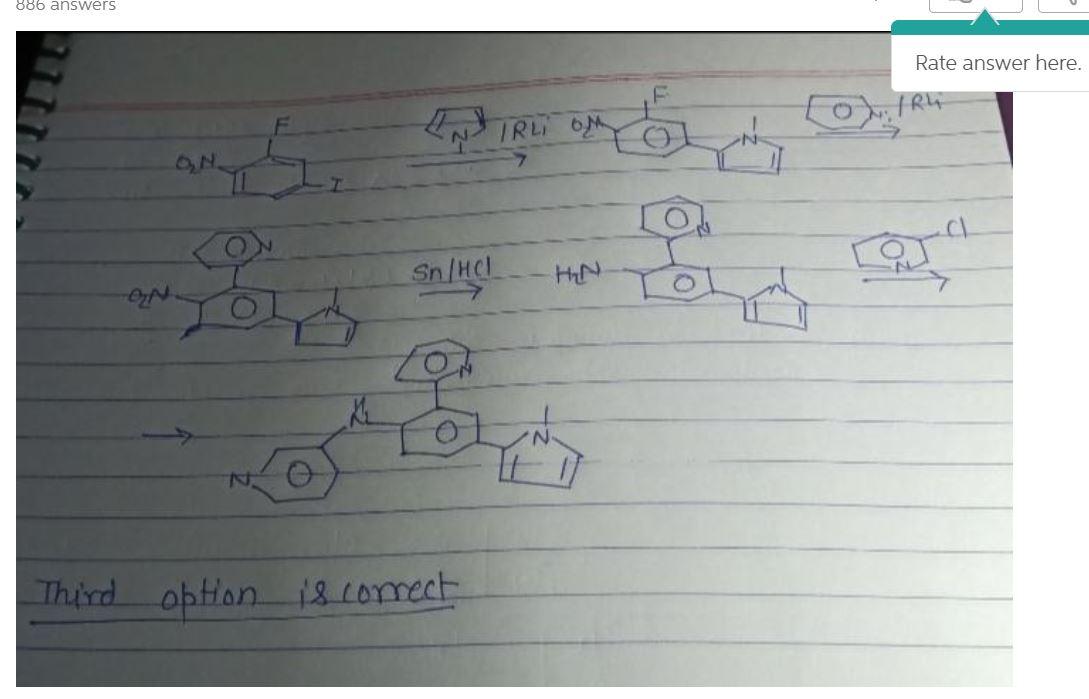 886 answers
Rate answer here.
F
O₂N
I
N
I
/RLi
F
O₂N
N
N
/RLi
N
O₂N
N
Sn/HCl
N
H₂N
N
Cl
N
N
H
N
N
N
Third option is correct